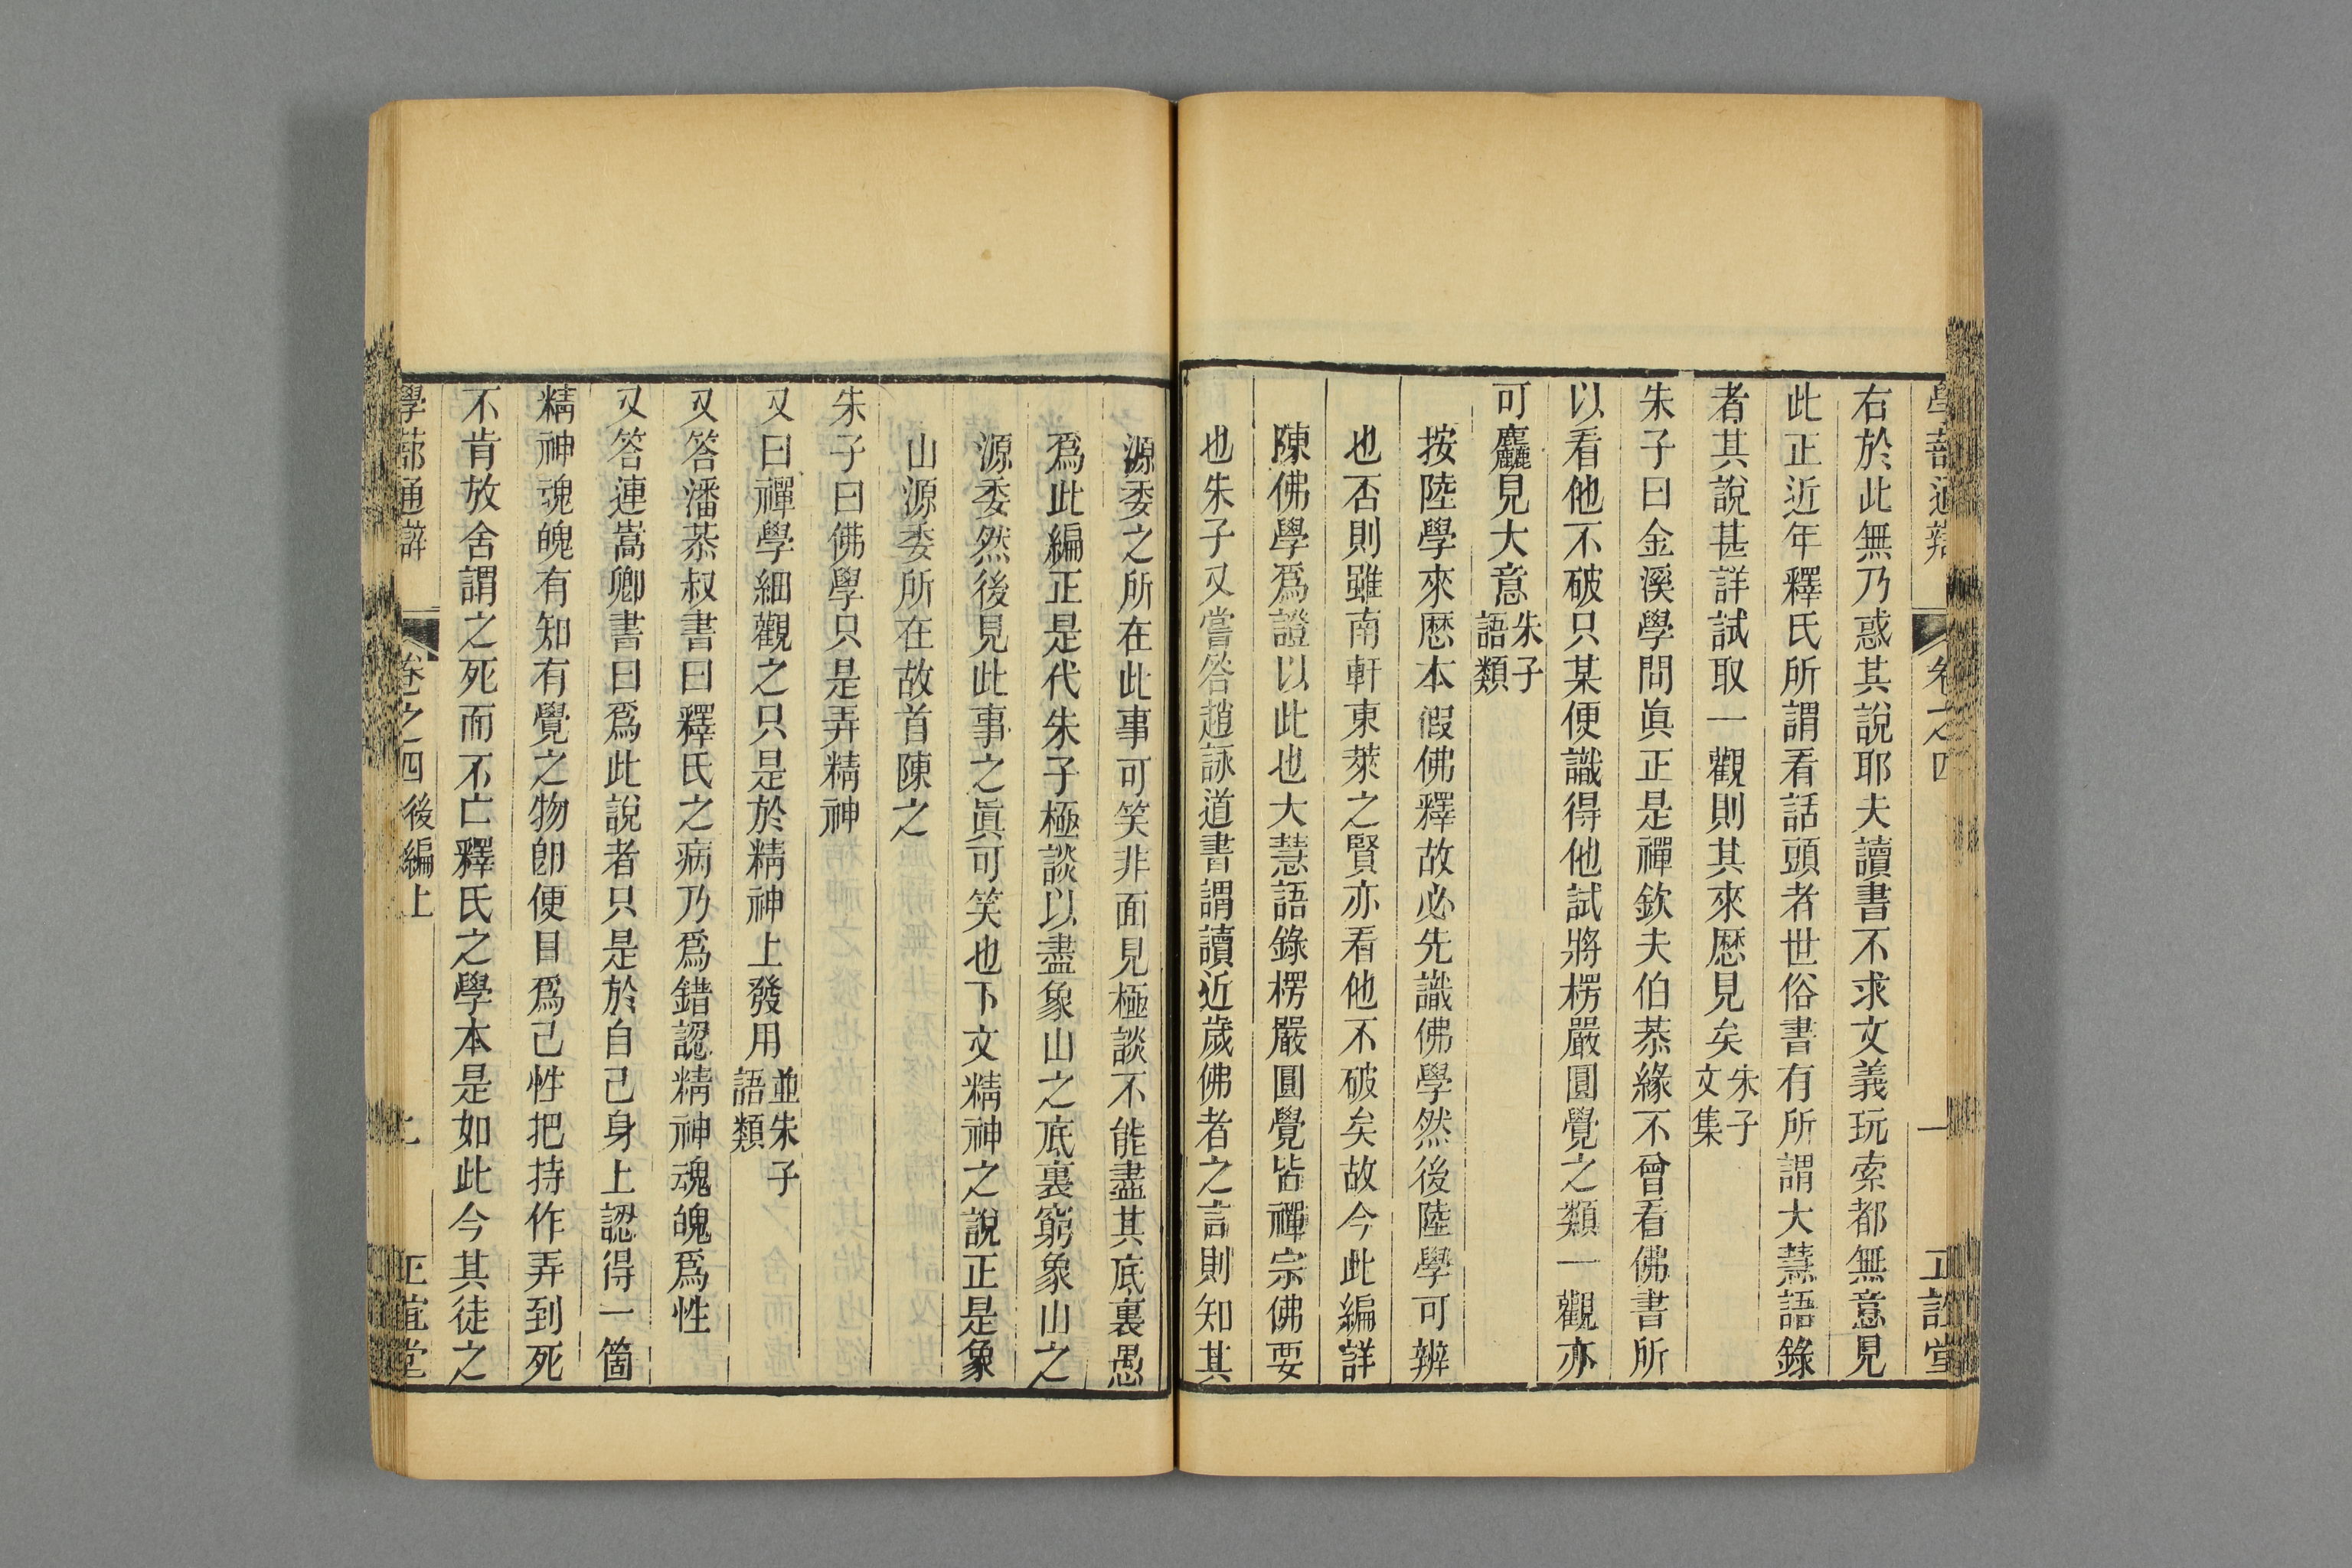 學蔀通辯 卷之四 一 正誼堂
右於此無乃惑其說耶夫讀書不求文義玩索都無意見
此正近年釋氏所謂看話頭者世俗書有所謂大慧語錄
者其說甚詳試取一觀則其來歷見矣朱子文集
朱子曰金溪學問眞正是禪欽夫伯恭緣不曾看佛書所
以看他不破只某便識得他試將楞嚴圓覺之類一觀亦
可麤見大意朱子語類
按陸學來歷本假佛釋故必先識佛學然後陸學可辨
也否則雖南軒東萊之賢亦看他不破矣故今此編詳
陳佛學爲證以此也大慧語錄楞嚴圓覺皆禪宗佛要
也朱子又嘗答趙詠道書謂讀近歲佛者之言則知其
源委之所在此事可笑非面見極談不能盡其底裏愚
爲此編正是代朱子極談以盡象山之底裏窮象山之
源委然後見此事之眞可笑也下文精神之說正是象
山源委所在故首陳之
朱子曰佛學只是弄精神
又曰禪學細觀之只是於精神上發用並朱子語類
又答潘恭叔書曰釋氏之病乃爲錯認精神魂魄爲性
又答連嵩卿書曰爲此說者只是於自己身上認得一箇
精神魂魄有知有覺之物卽便目爲己性把持作弄到死
不肯放舍謂之死而不亡釋氏之學本是如此今其徒之
學蔀通辯 卷之四後編上 正誼堂